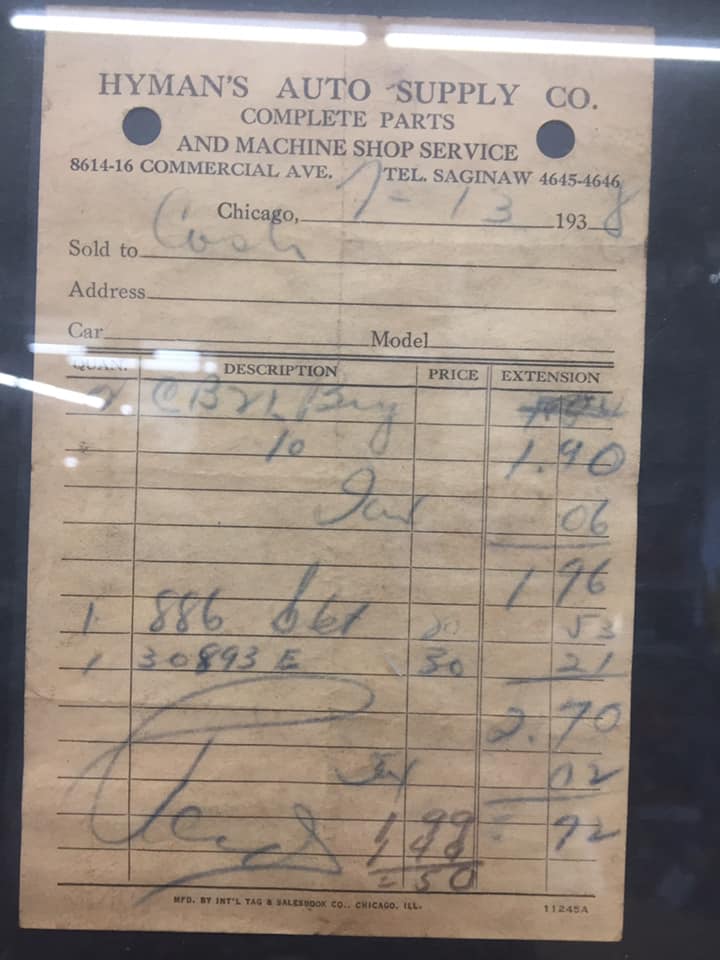 HYMAN'S AUTO SUPPLY CO.
COMPLETE PARTS
AND MACHINE SHOP SERVICE
8614-16 COMMERCIAL AVE. TEL. SAGINAW 4645-4646
Chicago, 7-13 1938
Sold to Cash
Address
Car Model
QUAN. DESCRIPTION PRICE EXTENSION
10 1.90
06
1 96
1 886 53
1 30893 E 30 21
2.70
02
1 99 72
50
MFD. BY INT'L TAG & SALESBOOK CO., CHICAGO, ILL. 11245A